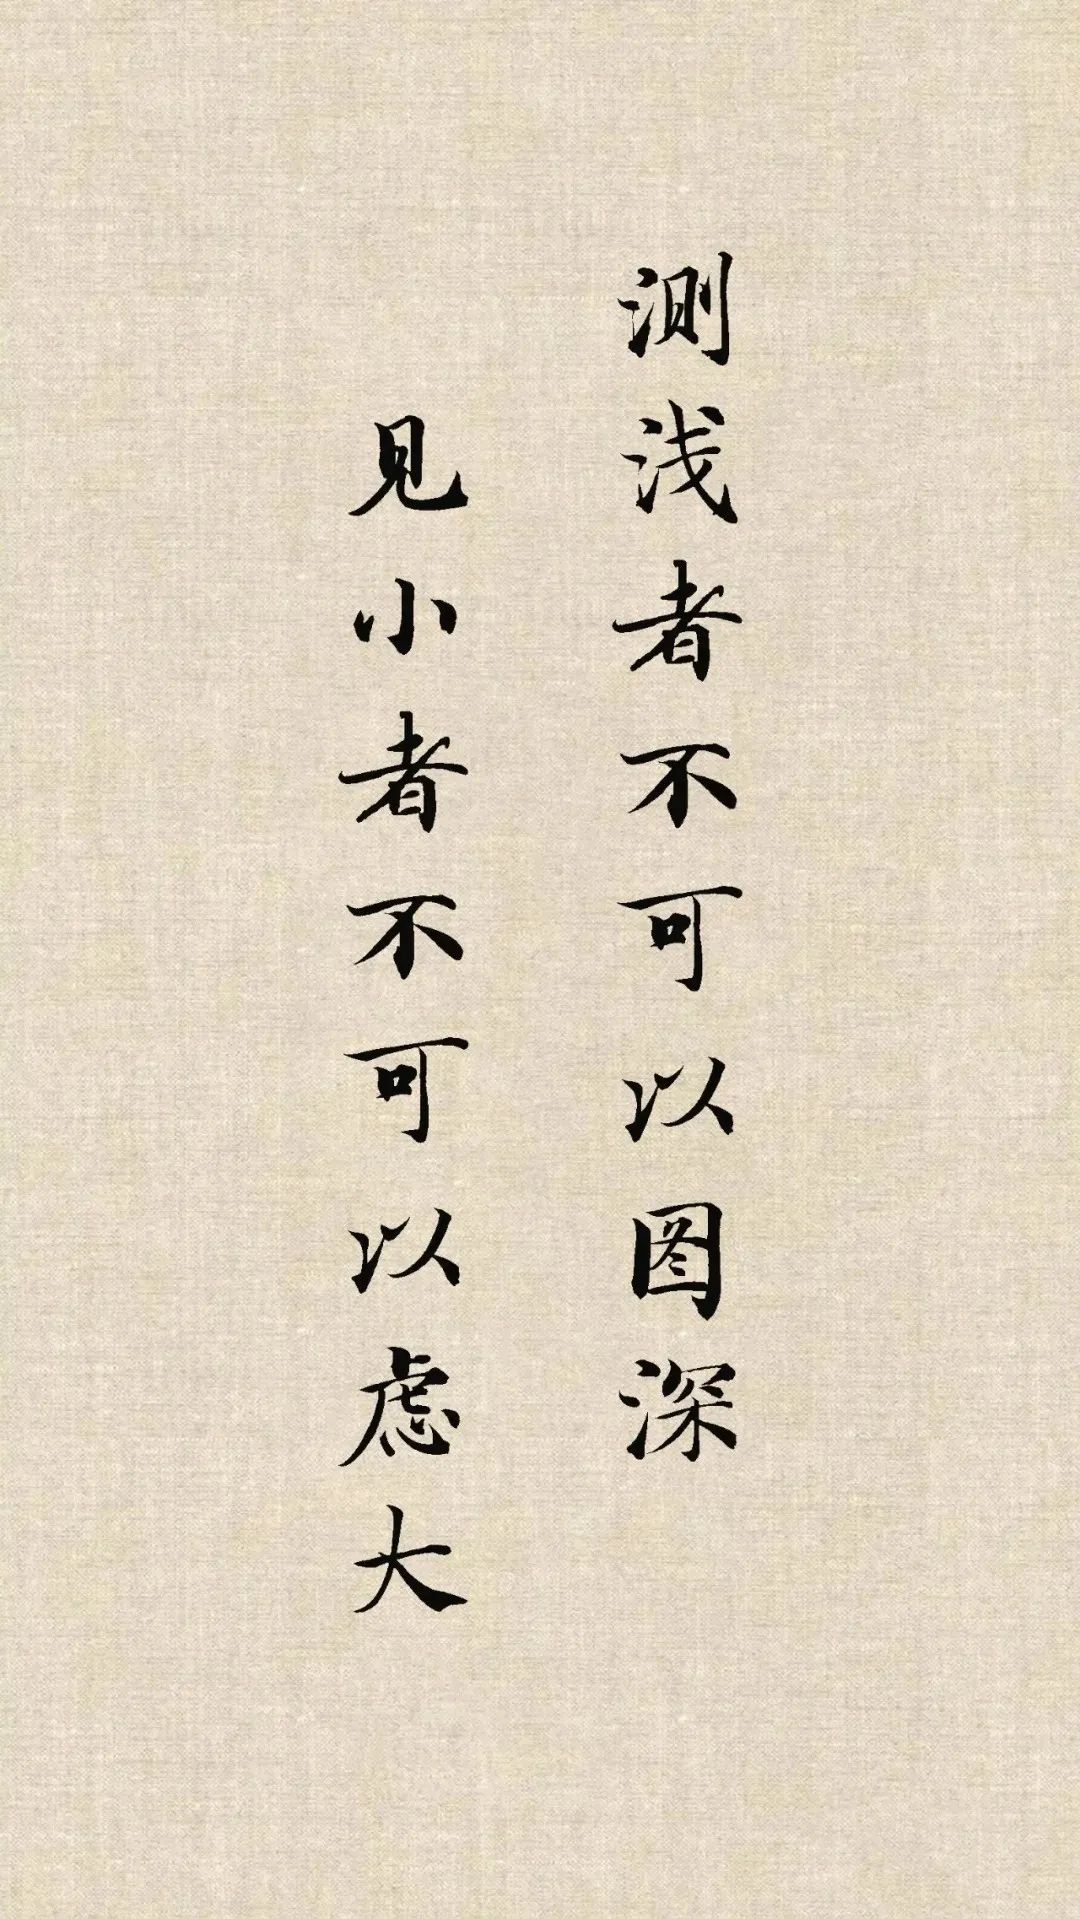 测浅者不可以图深
见小者不可以虑大